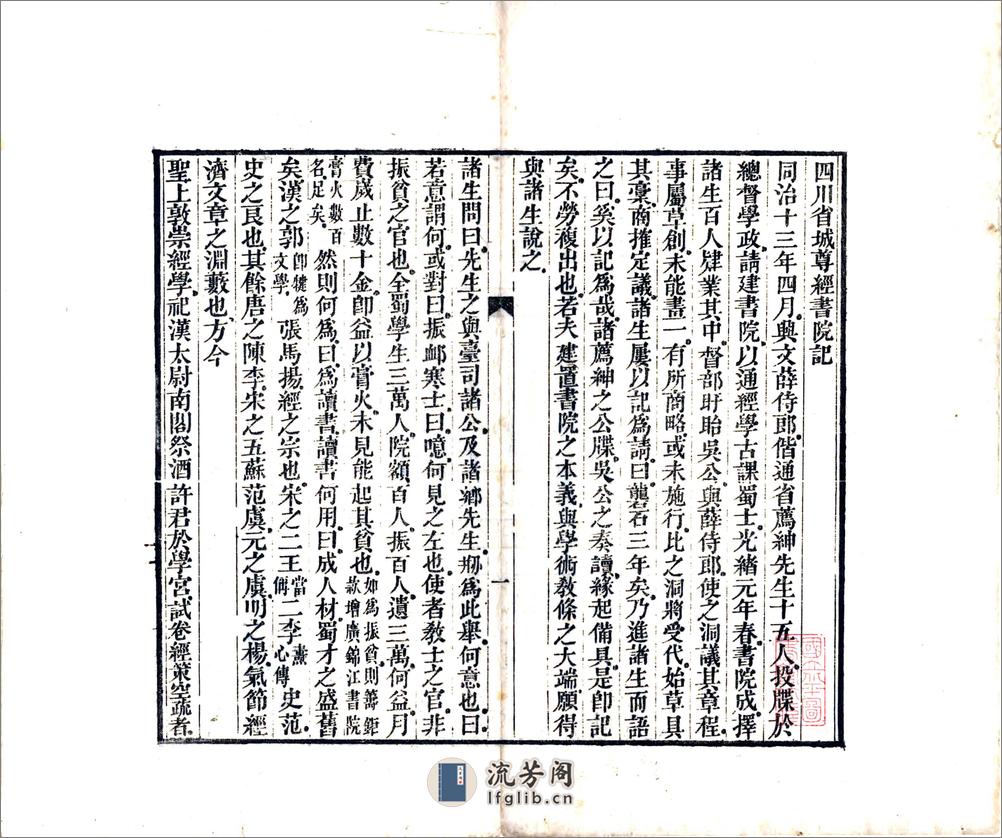 四川省城尊經書院記
同治十三年四月。興文薛侍郎。偕通省薦紳先生十五人。投牒於
總督學政。請建書院。以通經學古課蜀士。光緒元年春。書院成。擇
諸生百人肄業其中。督部盱眙吳公。與薛侍郎。使之洞議其章程。
事屬草創。未能畫一。有所商略。或未施行。比之洞將受代。始草具
其稾。商搉定議。諸生屢以記為請。曰。礲石三年矣。乃進諸生而語
之曰。奚以記為哉。諸薦紳之公牒。吳公之奏讀。緣起備具。是卽記
矣。不勞複出也。若夫建置書院之本義。與學術教條之大端。願得
與諸生說之。
諸生問曰。先生之與臺司諸公。及諸鄉先生。剏為此舉。何意也。曰。
若意謂何。或對曰。振卹寒士。曰。噫。何見之左也。使者教士之官。非
振貧之官也。全蜀學生三萬人。院額百人。振百人。遺三萬。何益。月
費歲止數十金。卽益以膏火。未見能起其貧也。如為振貧。則籌鉅款。增廣錦江書院
膏火數百名足矣。然則何為。曰。為讀書。讀書何用。曰。成人材。蜀才之盛舊
矣。漢之郭卽犍為文學。張馬揚。經之宗也。宋之二王當偁二李燾心傳史范。
史之良也。其餘唐之陳李。宋之五蘇范虞。元之虞。明之楊。氣節經
濟文章之淵藪也。方今
聖上敦崇經學。祀漢太尉南閣祭酒許君於學宮。試卷經策空疏者。
一
流芳阁
lfglib.cn